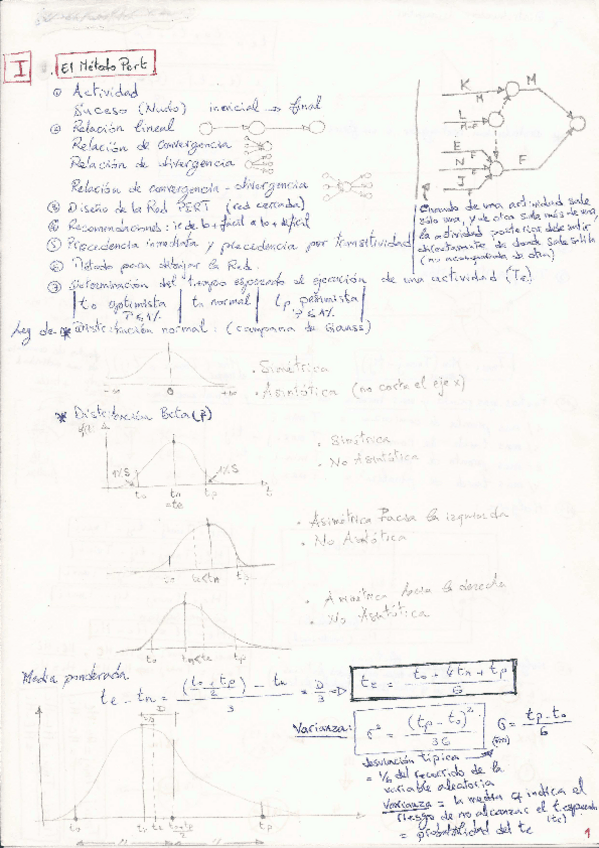 I. El Método Pert
① Actividad
Suceso (Nudo) inicial → final
② Relación lineal
Relación de convergencia
Relación de divergencia
Relación de convergencia - divergencia
③ Diseño de la Red PERT (red cerrada)
④ Recomendaciones: ir de lo + fácil a lo + difícil
⑤ Precedencia inmediata y precedencia por transitividad
⑥ Método para dibujar la Red.
⑦ Determinación del tiempo esperado de ejecución de una actividad (Te)
to optimista tn normal tp pesimista
P≤1% P≤1%
K M M
L M F
E F
N F F
J F
Cuando de una actividad sale
sólo una, y de otra sale más de una,
la actividad posterior debe salir
directamente de donde sale sólita
(no acompañada de otra)
Ley de * Distribución normal: (campana de Gauss)
-∞ 0 +∞
. Simétrica
. Asintótica (no corta el eje x)
* Distribución Beta (β)
1%S 1%S
to tn tp t
=te
. Simétrica
. No Asintótica
to te<tn tp
. Asimétrica hacia la izquierda
. No Asintótica
to tn<te tp
. Asimétrica hacia la derecha
. No Asintótica
Media ponderada
te - tn = ((to + tp)/2 - tn)/3 = D/3 ⇒ te = (to + 4tn + tp)/6
Varianza: σ² = (tp - to)²/36 σ = (tp - to)/6
desviación típica
= 1/6 del recorrido de la
variable aleatoria
Varianza = la medida q indica el
riesgo de no alcanzar el t. esperado
(te)
= probabilidad del te
to tn te (to+tp)/2 tp
1